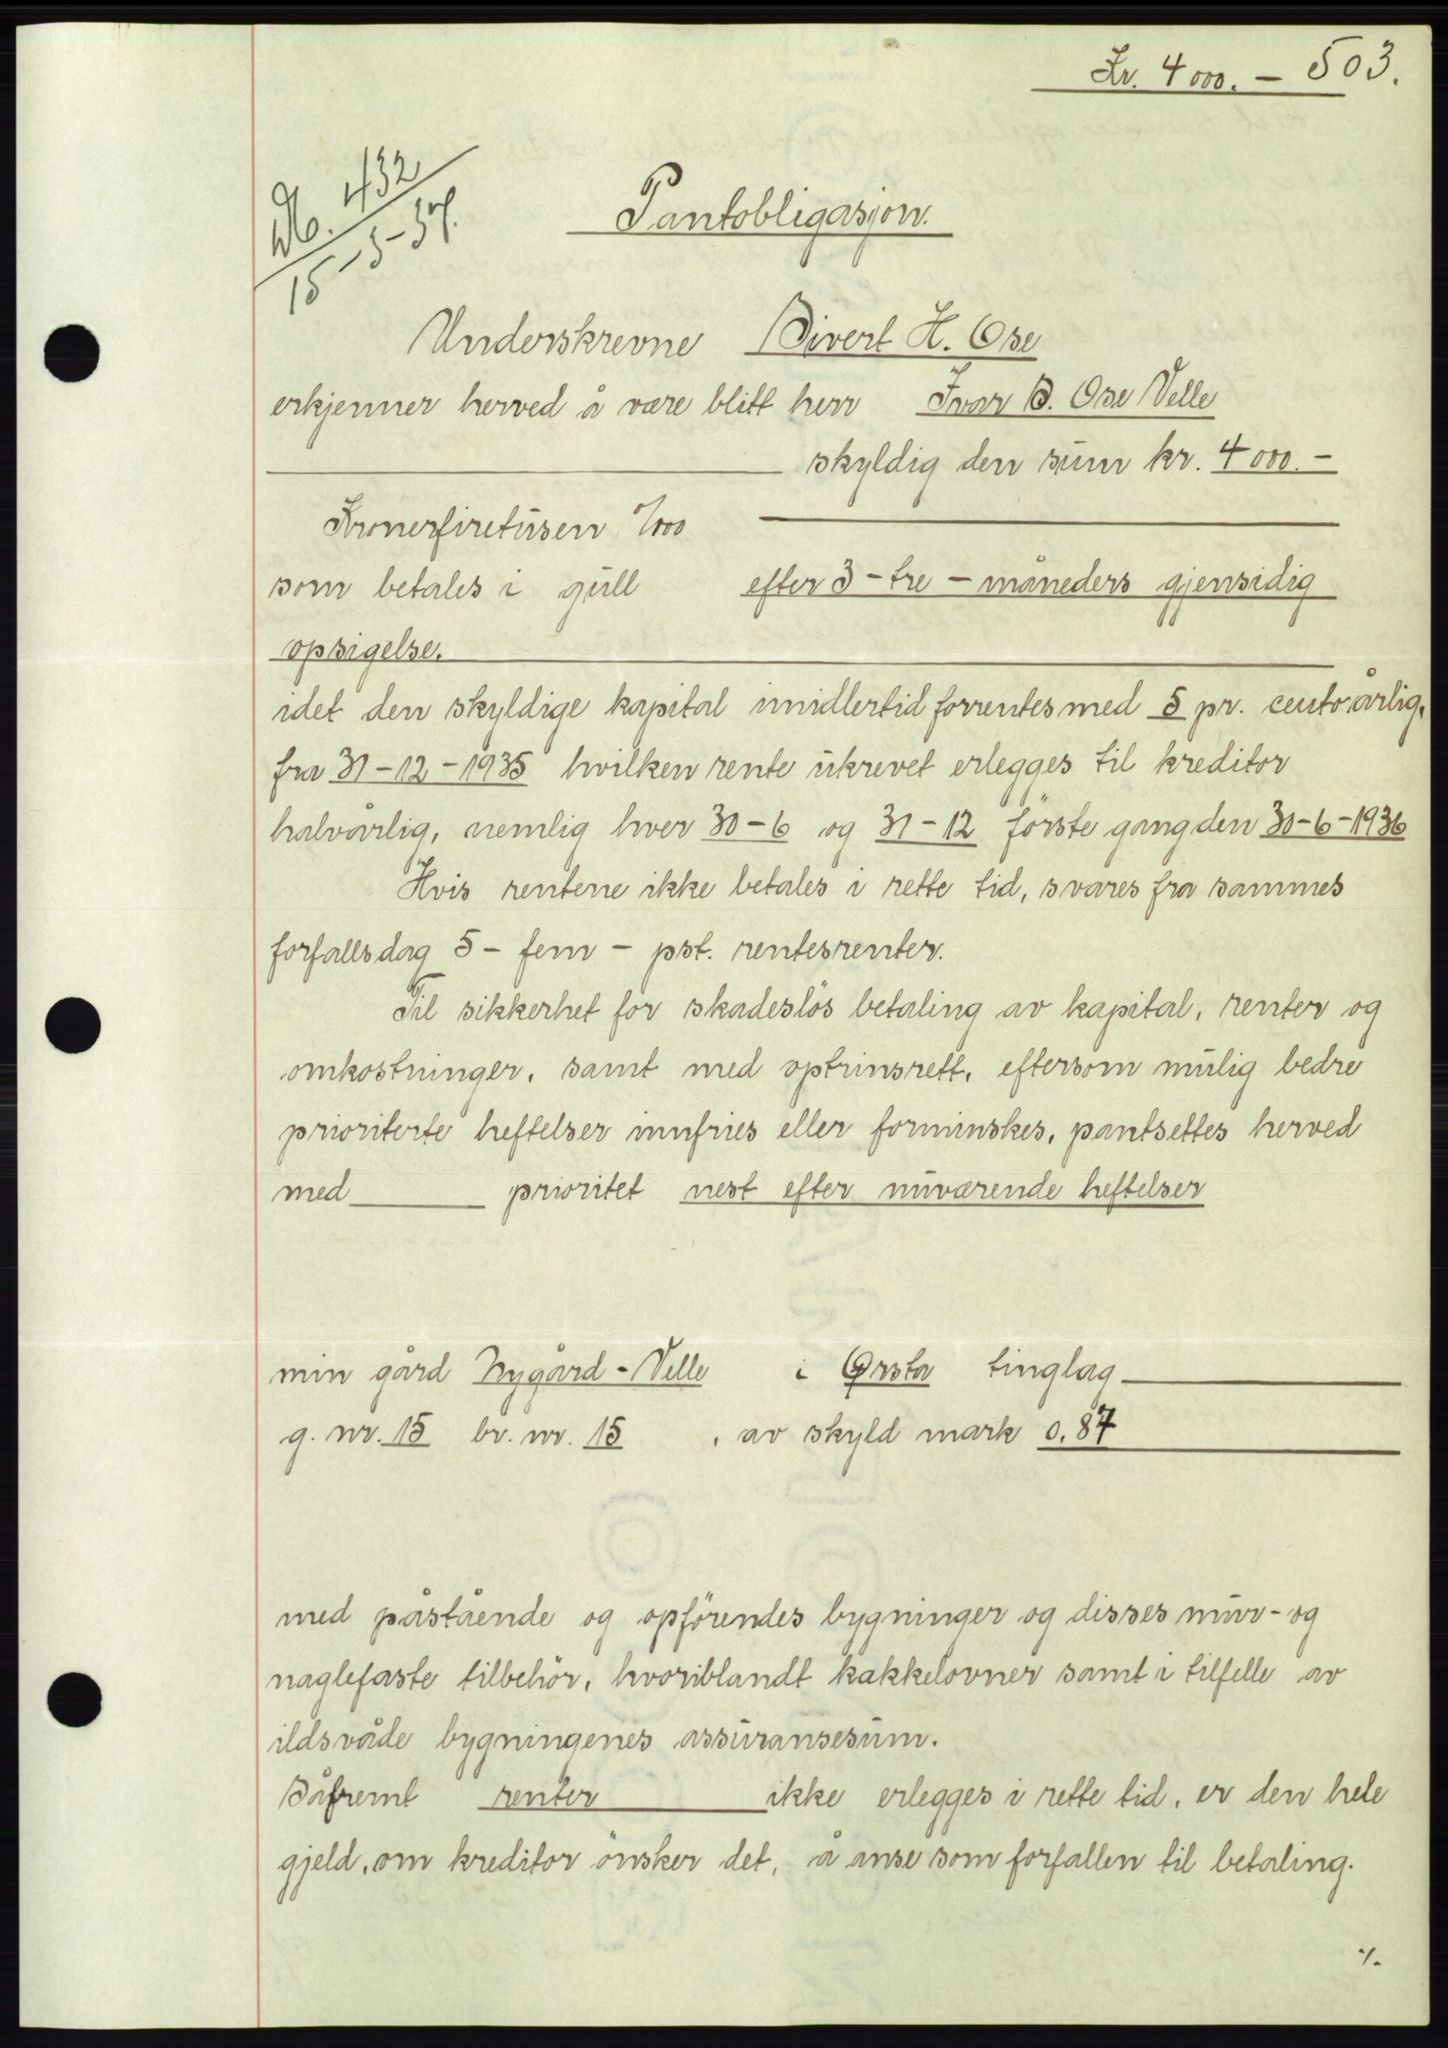 Kr. 4000.- 503.
Db. 432
15-3-37.
Pantobligasjon.
Underskrevne Sivert H. Ose
erkjenner herved å være blitt herr Ivar S. Ose Velle
skyldig den sum kr. 4000.-
Kronerfiretusen 0/000
som betales i gull efter 3-tre-måneders gjensidig
opsigelse.
idet den skyldige kapital imidlertid forrentes med 5 pr. cento årlig,
fra 31-12-1935 hvilken rente ukrevet erlegges til kreditor
halvårlig, nemlig hver 30-6 og 31-12 förste gang den 30-6-1936
Hvis rentene ikke betales i rette tid, svares fra sammes
forfallsdag 5- fem - pst. rentesrenter.
Til sikkerhet for skadeslös betaling av kapital, renter og
omkostninger, samt med optrinsrett, eftersom mulig bedre
prioriterte heftelser innfries eller forminskes, pantsettes herved
med prioritet nest efter nuværende heftelser
min gård Nygård-Velle i Ørsta tinglag
g. nr. 15 br. nr. 15, av skyld mark 0.87
med påstående og opförendes bygninger og disses mur- og
naglefaste tilbehör, hvoriblandt kakkelovner samt i tilfelle av
ildsvåde bygningenes assuransesum.
Såfremt renter ikke erlegges i rette tid, er den hele
gjeld, om kreditor önsker det, å anse som forfallen til betaling.
./.